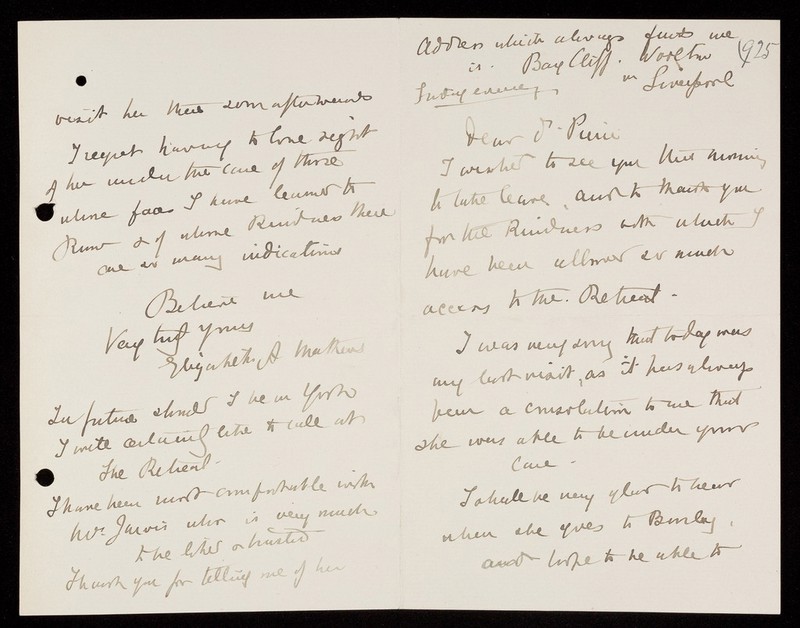 Address which always finds me
is. Bay Cliff. Woolton
nr Liverpool
925
Friday evening
Dear Dr
I wished to see you this morning
to take leave, and to thank you
for the kindness with which I
have been allowed so much
access to the. Retreat -
I was very sorry that today was
my last visit, as it has always
been a consolation to me that
she was able to be under your
care -
I shall be very glad to hear
when she goes to
and hope to be able to
visit her there soon afterwards
I regret having to lose sight
of her under the care of those
whose faces I have learned to
know & of whose kindness there
are so many indications
Believe me
Very truly yours
Elizabeth A Mathews
In future should I be in York
I will certainly like to call at
The Retreat -
I have been most comfortable with
Mrs Jarvis who is very much
to be liked & trusted
Thank you for telling me of her